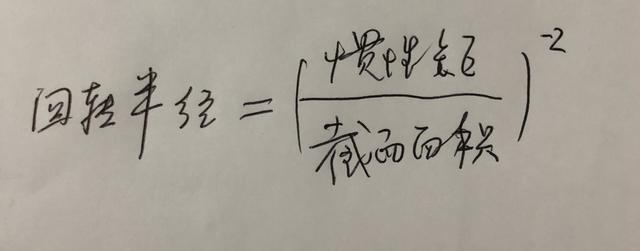 回转半径=(惯性矩/截面面积)^-2